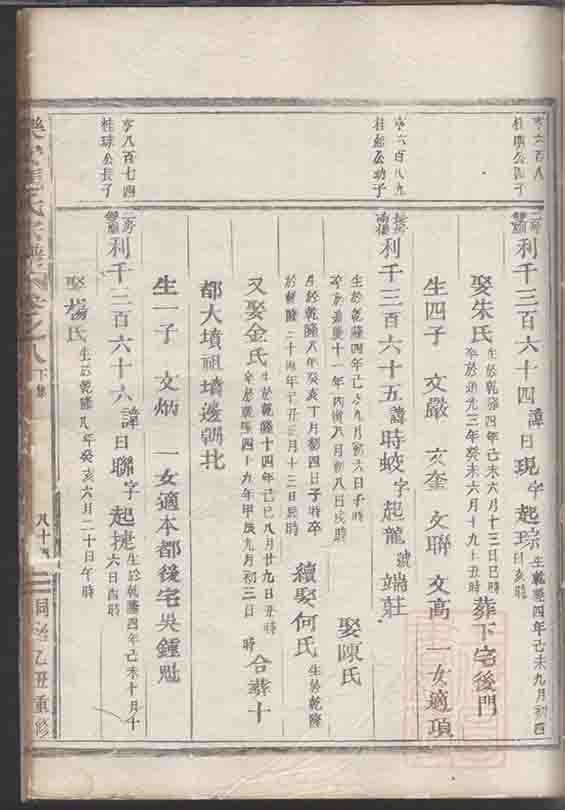 亨六百八
桂璟公四子
二房
雙廟
利千三百六十四諱日現字起琮生乾隆四年己未九月初四
日亥時
娶朱氏生於乾隆四年己未六月十三日巳時
卒於道光三年癸未六月十九日丑時葬下宅後門
生四子 文嚴 文奎 文聯 文高 一女適項
亨六百八九
公幼子
利千三百六十五諱時蛟字起龍號端莊
生於乾隆四年己未九月初六日子時
卒於嘉慶十一年丙寅八月初八日戌時 娶陳氏
生於乾隆八年癸亥丁月初四日子時卒
於乾隆二十四年己卯三月十三日辰時 續娶何氏生於乾隆
又娶金氏生於乾隆十四年己巳八月廿九日丑時
卒於乾隆四十九年甲辰九月初三日 時 合葬十
都大墳祖墳邊朝北
生一子 文炳 一女適本都後宅吳鍾魁
亨八百七四
桂球公長子
二房
雙廟
利千三百六十六諱日聯字起捷生於乾隆四年己未十月十
六日酉時
娶楊氏生於乾隆八年癸亥六月二十日午時
氏宗譜卷之八下集
八十四
同治乙丑重修